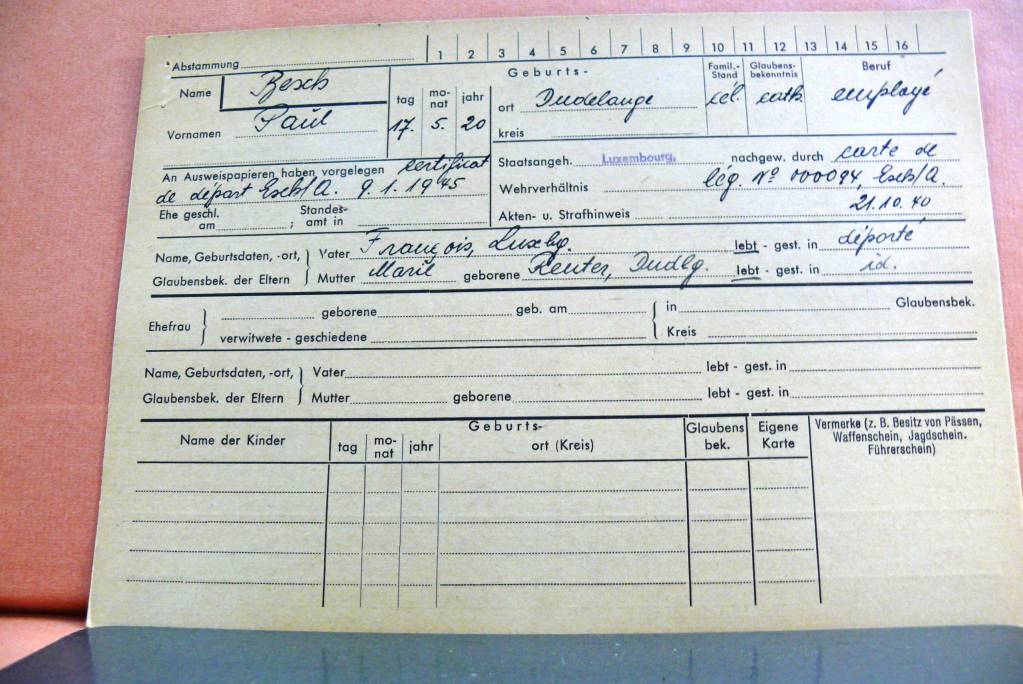 Abstammung 1 2 3 4 5 6 7 8 9 10 11 12 13 14 15 16
Name Besch
Vornamen Paul
tag mo-nat jahr
17. 5. 20
Geburts-
ort Dudelange
kreis
Famil.-Stand
cél.
Glaubens-bekenntnis
cath.
Beruf
employé
An Ausweispapieren haben vorgelegen certificat
de départ Esch/A. 9.1.1945
Ehe geschl. am ; Standes-amt in
Staatsangeh. Luxembourg. nachgew. durch carte de
Wehrverhältnis lég. No 000094, Esch/A.
21.10.40
Akten- u. Strafhinweis
Name, Geburtsdaten, -ort, Vater François, Luxbg. lebt - gest. in déporté
Glaubensbek. der Eltern Mutter Marie geborene Reuter, Dudlg. lebt - gest. in id.
Ehefrau geborene geb. am in Glaubensbek.
verwitwete - geschiedene Kreis
Name, Geburtsdaten, -ort, Vater lebt - gest. in
Glaubensbek. der Eltern Mutter geborene lebt - gest. in
Name der Kinder
Geburts-
tag mo-nat jahr ort (Kreis)
Glaubens bek.
Eigene Karte
Vermerke (z. B. Besitz von Pässen,
Waffenschein, Jagdschein.
Führerschein)